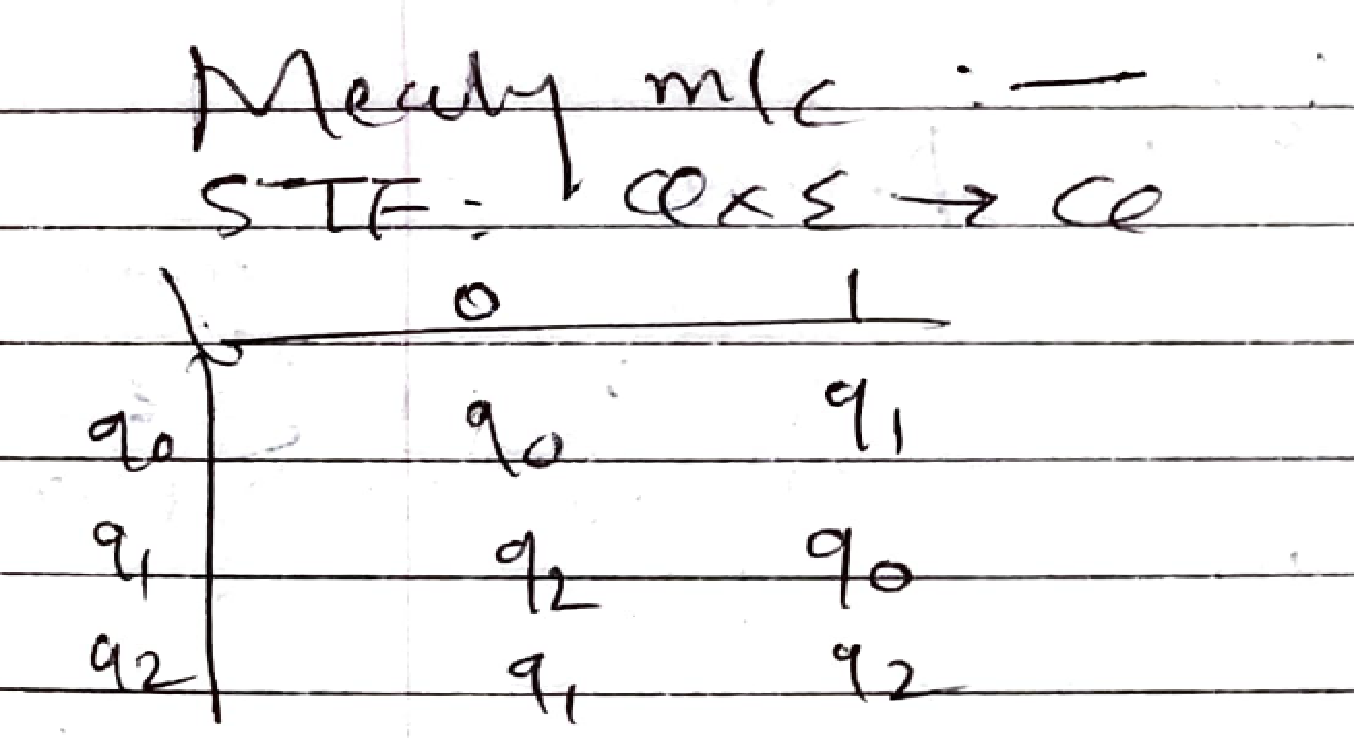 Mealy m/c :—
STF: Q×Σ → Q
0 1
q0 q0 q1
q1 q2 q0
q2 q1 q2